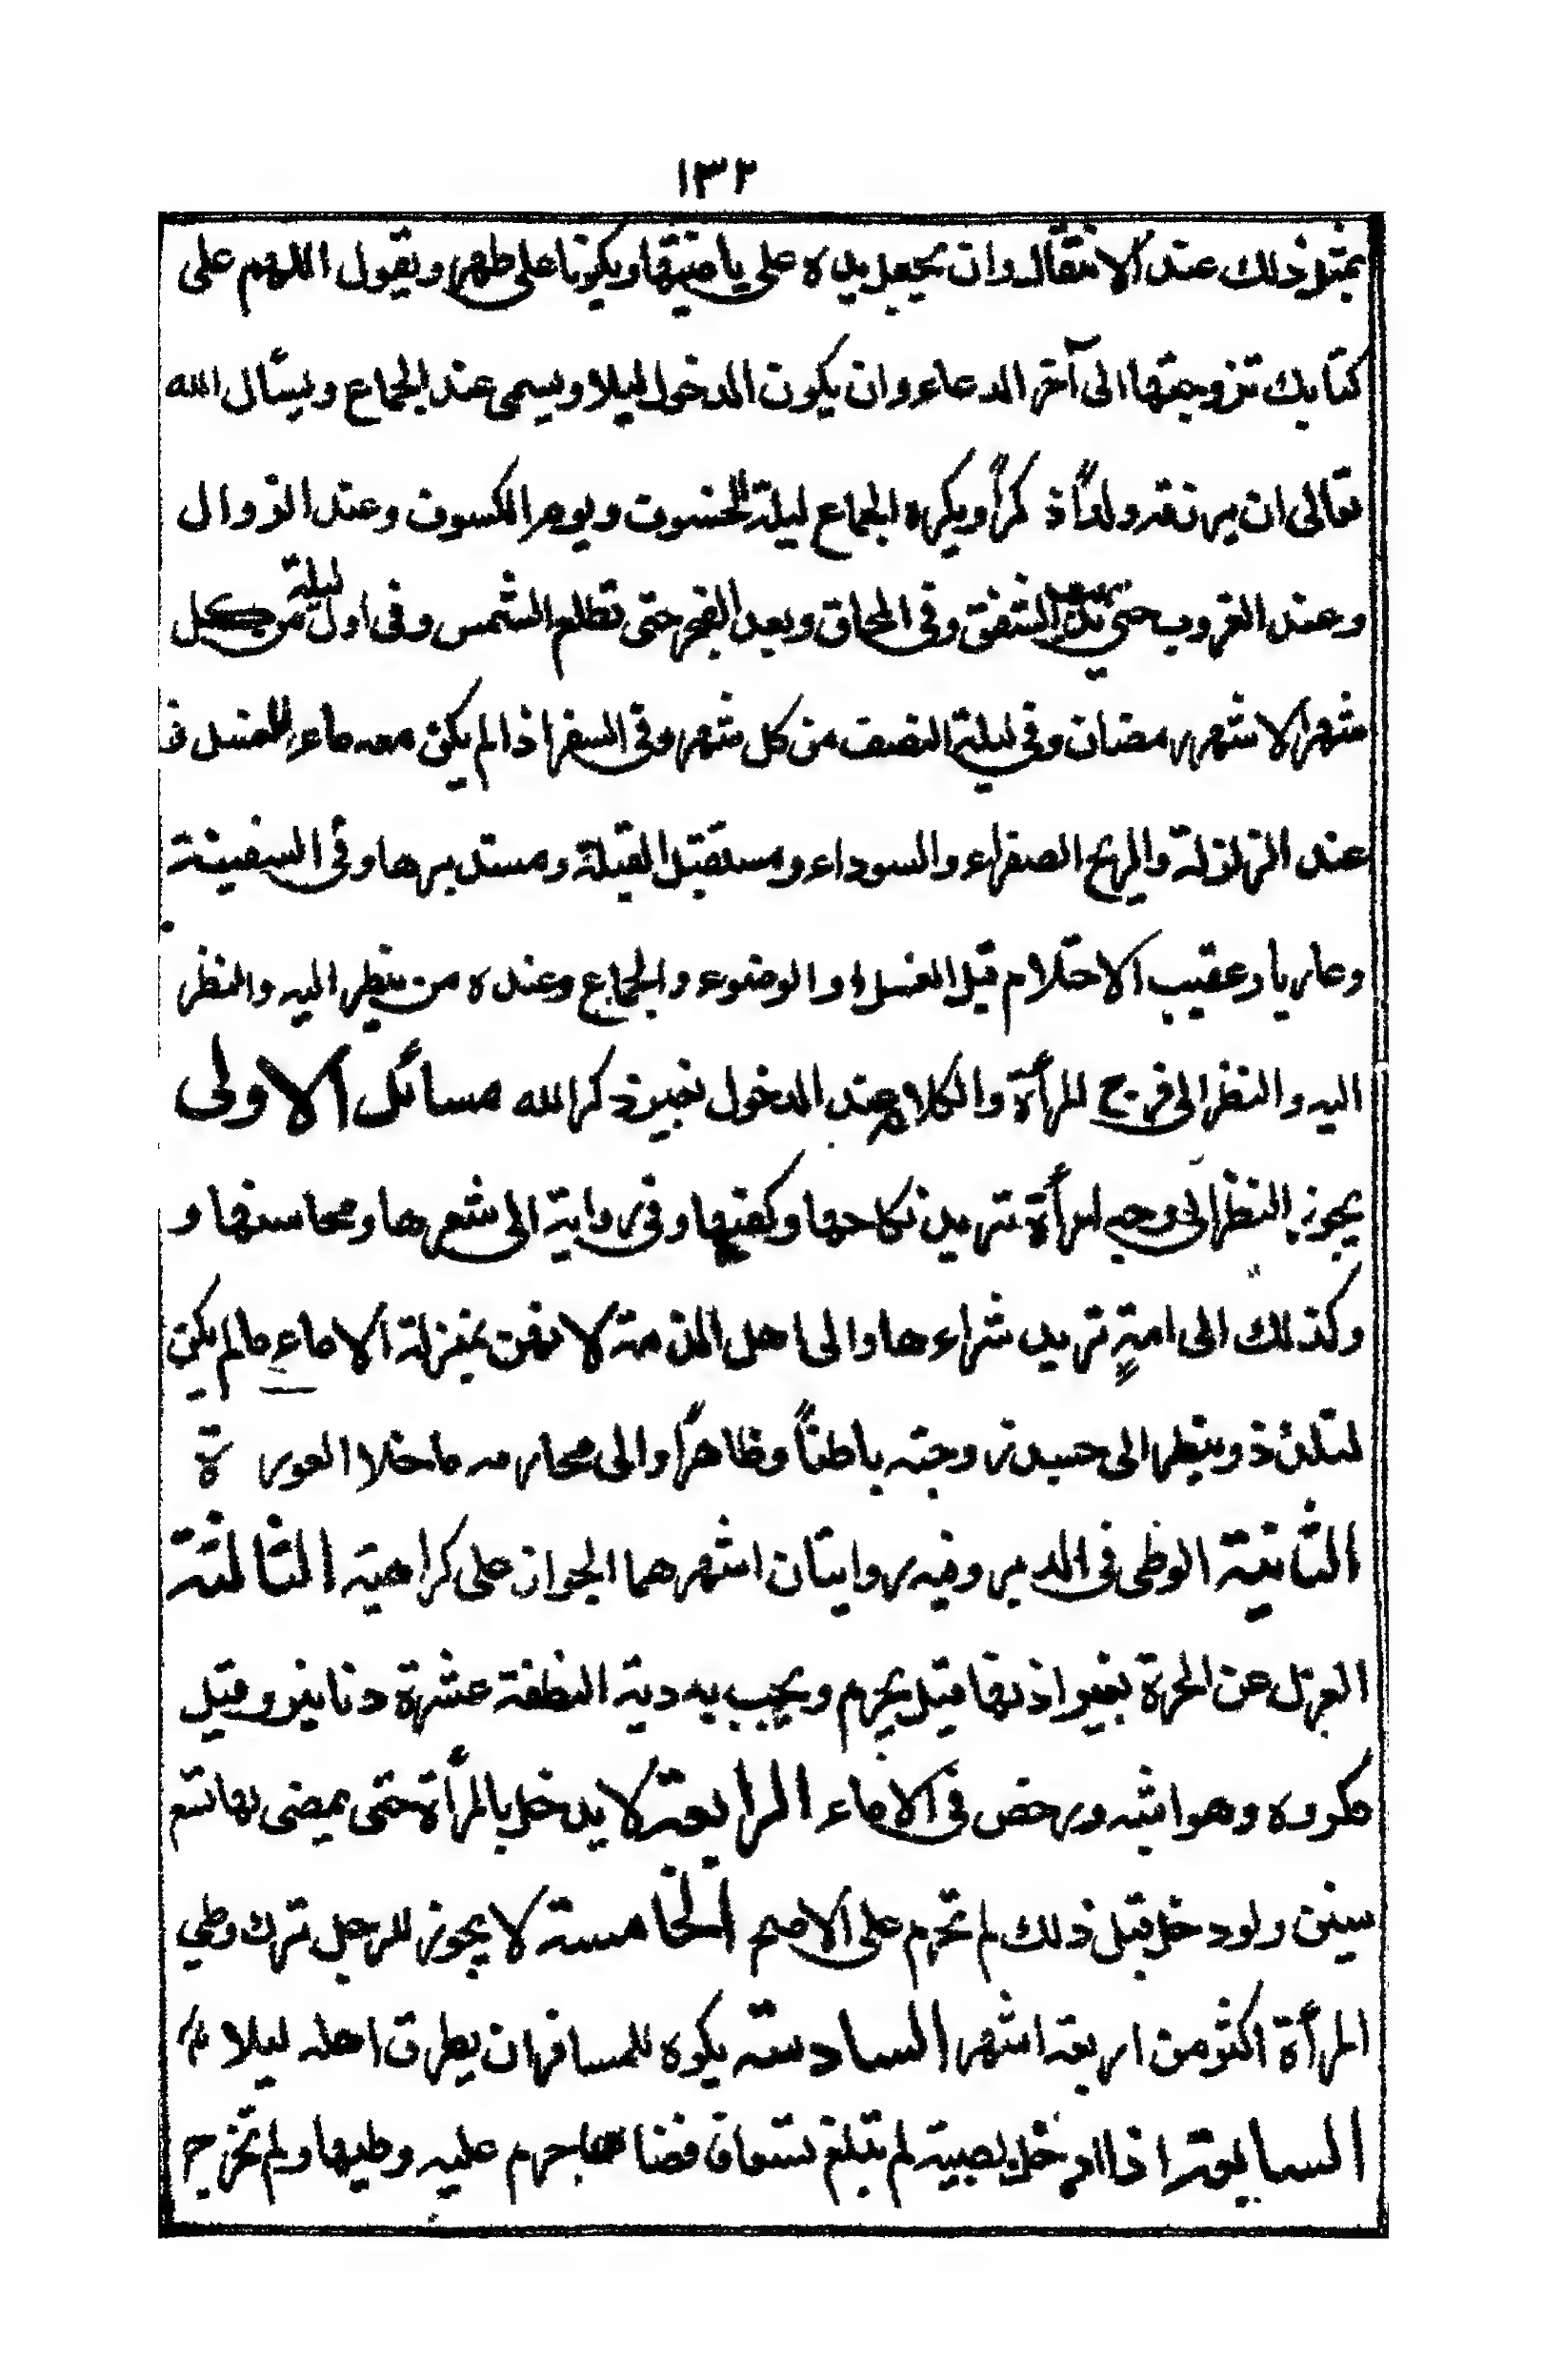 ١٣٢
بمثل ذلك عند الانتقال وان يجعل يده على ناصيتها ويكونا على طهر ويقول اللهم على
كتابك تزوجتها الى آخر الدعاء وان يكون الدخول ليلا ويسمى عند الجماع ويسأل الله
تعالى ان يرزقه ولداً ذكراً ويكره الجماع ليلة الخسوف ويوم الكسوف وعند الزوال
وعند الغروب حتى يذهب الشفق وفى المحاق وبعد الفجر حتى تطلع الشمس وفى اول ليلة من كل
شهر الا شهر رمضان وفى ليلة النصف من كل شهر وفى السفر اذا لم يكن معه ماء للغسل و
عند الزلزلة والريح الصفراء والسوداء ومستقبل القبلة ومستدبرها وفى السفينة
وعاريا وعقيب الاحتلام قبل الغسل او الوضوء والجماع وعنده من ينظر اليه والنظر
اليه والنظر الى فرج المرأة والكلام عند الدخول بغير ذكر الله مسائل الاولى
يجوز النظر الى وجه امرأة تريد نكاحها وكفيها وفى رواية الى شعرها ومحاسنها و
وكذلك الى امةٍ تريد شراءها والى اهل الذمة لانهن بمنزلة الاماء مالم يكن
لتلذذ وينظر الى جسد زوجته باطناً وظاهراً والى محارمه ما خلا العورة
الثانية الوطى فى الدبر وفيه روايتان اشهرهما الجواز على كراهية الثالثة
العزل عن الحرة بغير اذنها قيل يحرم ويجب به دية النطفة عشرة دنانير وقيل
مكروه وهو اشبه ورخص فى الاماء الرابعة لا يدخل بالمرأة حتى يمضى لها تسع
سنين ولو دخل قبل ذلك لم تحرم على الاصح الخامسة لا يجوز للرجل ترك وطي
المرأة اكثر من اربعة اشهر السادسة يكره للمسافر ان يطرق اهله ليلا
السابعة اذا دخل بصبية لم تبلغ تسعاف فضاها حرم عليه وطيها ولم تخرج